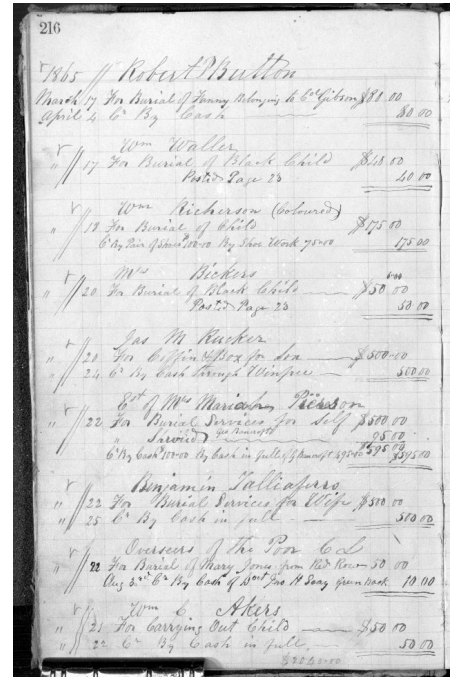 216
1865 // Robert Button
March 17 For Burial of Fanny Belonging to Gibson $80.00
April 4 Cr By Cash 80.00
Wm Waller
" // 17 For Burial of Black Child $40.00
Posted Page 23 40.00
Wm Richerson (Coloured)
" // 18 For Burial of Child $175.00
Cr By Pair of Shoes 100.00 By Shoe Work 75.00 175.00
Mrs Bickers
" // 20 For Burial of Black Child $50.00
Posted Page 23 50.00
Jas M Rucker
" // 20 For Coffin & Box for Son $500.00
" 24 Cr By Cash through Winfree 500.00
Est of Mrs Pierson
" // 22 For Burial Services for Self $500.00
" Shroud 95.00
$595.00
Cr By Cash 100.00 By Cash in full of 495.00 $595.00
Benjamin Talliaferro
" // 22 For Burial Services for Wife $500
" 25 Cr By Cash in full 500.00
Overseers of the Poor C L
" // 22 For Burial of Mary Jones from Red Row 50.00
Aug 3rd Cr By Cash of Jno H Seay Green back 10.00
Wm C Akers
" // 21 For Carrying Out Child $50.00
" 22 Cr By Cash in full 50.00